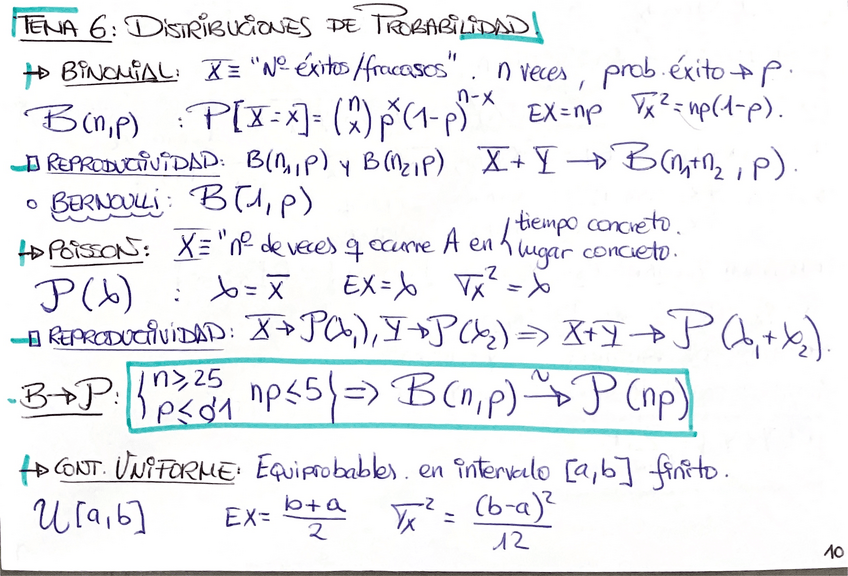 TEMA 6: DISTRIBUCIONES DE PROBABILIDAD
↦ BINOMIAL: X ≡ "Nº éxitos/fracasos". n veces, prob. éxito → p.
B(n,p) : P[X=x] = (n x) p^x (1-p)^{n-x} EX=np σ_x² = np(1-p).
REPRODUCTIVIDAD: B(n₁,p) y B(n₂,p) X+Y → B(n₁+n₂, p).
○ BERNOULLI: B(1,p)
↦ POISSON: X ≡ "nº de veces q ocurre A en { tiempo concreto. lugar concreto.
P(λ) : λ = x̄ EX=λ σ_x² = λ
REPRODUCTIVIDAD: X→P(λ₁), Y→P(λ₂) => X+Y → P(λ₁+λ₂).
B→P: { n≥25 p≤0'1 np≤5 } => B(n,p) ~→ P(np)
↦ CONT. UNIFORME: Equiprobables. en intervalo [a,b] finito.
U[a,b] EX = (b+a)/2 σ_x² = (b-a)²/12
10